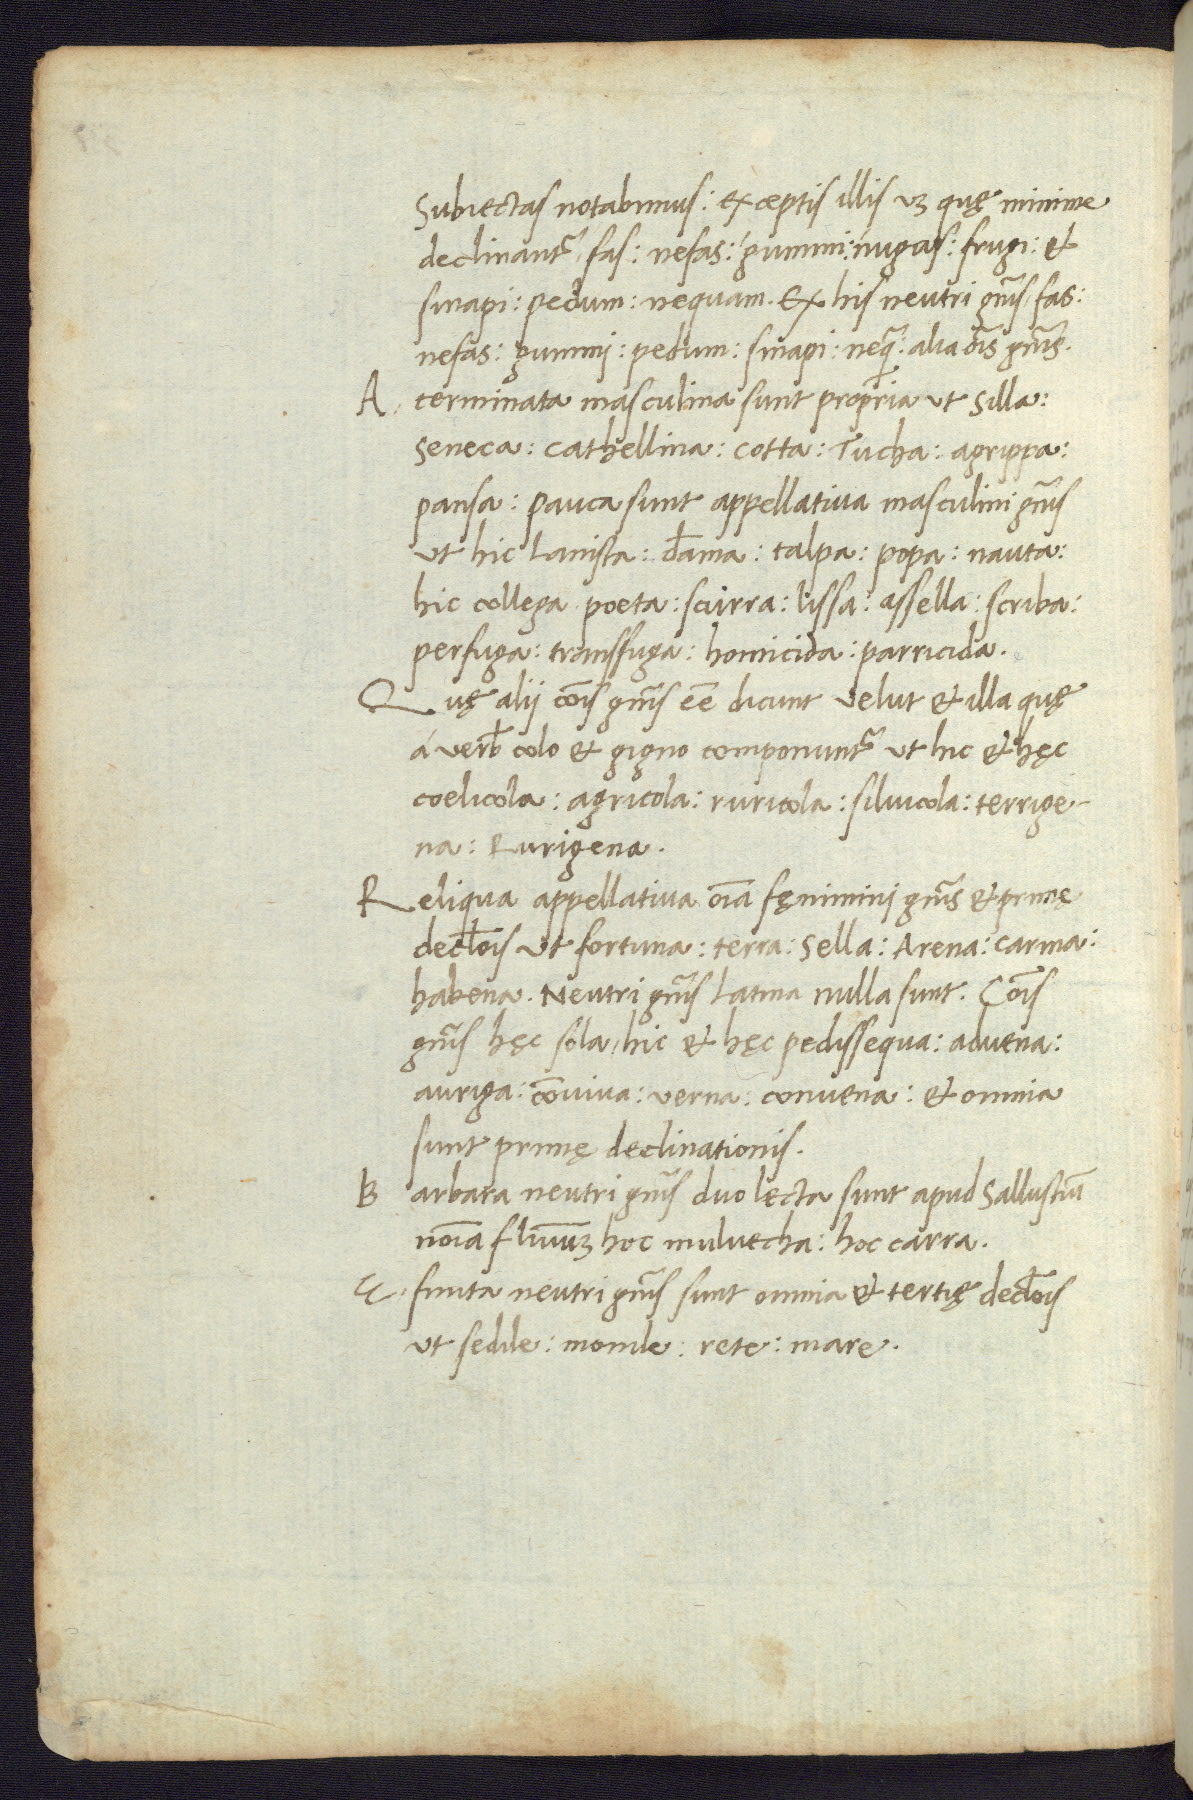 Subiectas notabimus: exceptis illis vꝫ quę minime
declinant᷑ fas: nefas: gummi: nugas: frugi: &
sinapi: pedum: nequam. Ex his neutri gn̄is fas:
nefas: gummi: pedum: sinapi: neq̄: alia ōis gn̄is.
A. terminata masculina sunt propria ut Silla:
Seneca: Cathellina: Cotta: Tucha: agrippa:
pansa: Pauca sunt appellativa masculini gn̄is
ut hic Lanista: dama: talpa: popa: nauta:
hic collega poeta: scurra: lissa: assella: scriba:
perfuga: transfuga: homicida: parricida.
Quę alij cōis gn̄is eē dicunt velut & illa quę
á verb̄ colo & gigno componunt᷑ ut hic & hęc
coelicola: agricola: ruricola: silvicola: terrige-
na: Rurigena.
Reliqua appellativa oīa fęminini gn̄is & primę
decl̄ois ut fortuna: terra: Sella: Arena: carina:
habena. Neutri gn̄is Latina nulla sunt. Cōis
gn̄is hęc sola, hic & hęc pedissequa: advena:
auriga: cōviva: verna: convena: & omnia
sunt primę declinationis.
Barbara neutri gn̄is duo lecta sunt apud Sallustiū
noīa fluviūꝫ hoc mulvecha: hoc carra.
E. finita neutri gn̄is sunt omnia & tertię decl̄ois
ut sedile: monile: rete: mare.